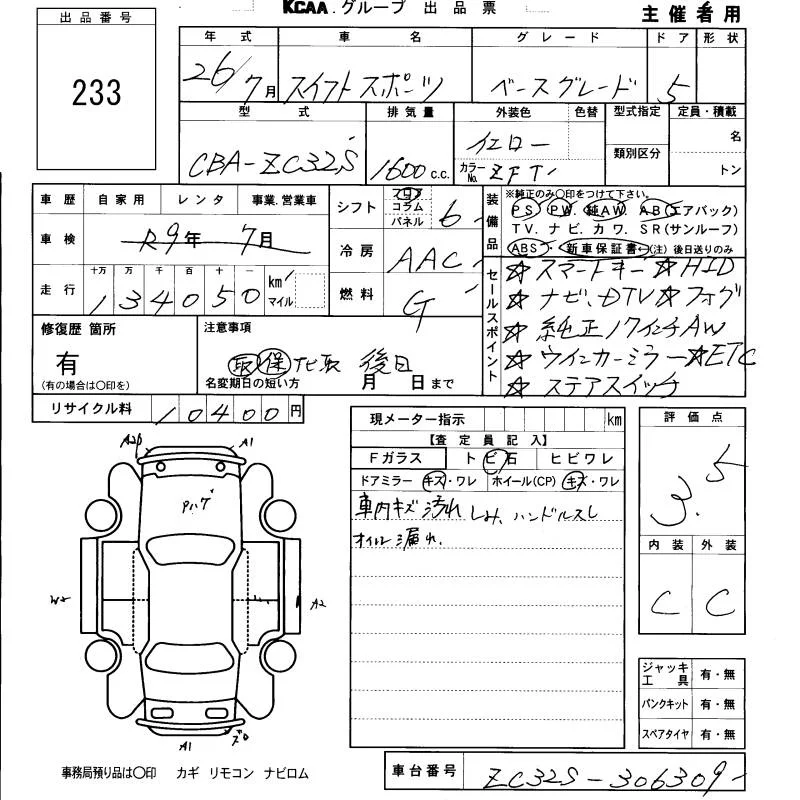 KCAA.グループ 出品票
主催者用
出品番号
233
年式 車名 グレード ドア 形状
26/7月 スイフトスポーツ ベースグレード 5
型式 排気量 外装色 色替 型式指定 定員・積載
CBA-ZC32S 1600 c.c. イエロー 名
カラーNo. ZFT 類別区分 トン
車歴 自家用 レンタ 事業.営業車
シフト フロア コラム パネル 6
装備品 ※純正のみ〇印をつけて下さい。
PS PW. 純AW. AB(エアバック)
TV. ナビ. カワ. SR(サンルーフ)
ABS・新車保証書(注) 後日送りのみ
車検 R9年7月
冷房 AAC
走行 十万 万 千 百 十 一
134050 km マイル
燃料 G
セールスポイント
☆スマートキー☆HID
☆ナビ、DTV☆フォグ
☆純正17インチAW
☆ウインカーミラー☆ETC
☆ステアスイッチ
修復歴 箇所 注意事項
有
(有の場合は〇印を)
取 保 ナビ取 後日
名変期日の短い方 月 日まで
リサイクル料 10400円
現メーター指示 km
【査定員記入】
Fガラス トビ石 ヒビワレ
ドアミラー キズ・ワレ ホイール(CP) キズ・ワレ
車内キズ 汚れ しみ、ハンドルスレ
オイル漏れ、
評価点
3.5
内装 外装
C C
A1
W2
A2
A1
ジャッキ工具 有・無
パンクキット 有・無
スペアタイヤ 有・無
事務局預り品は〇印 カギ リモコン ナビロム
車台番号 ZC32S-306309